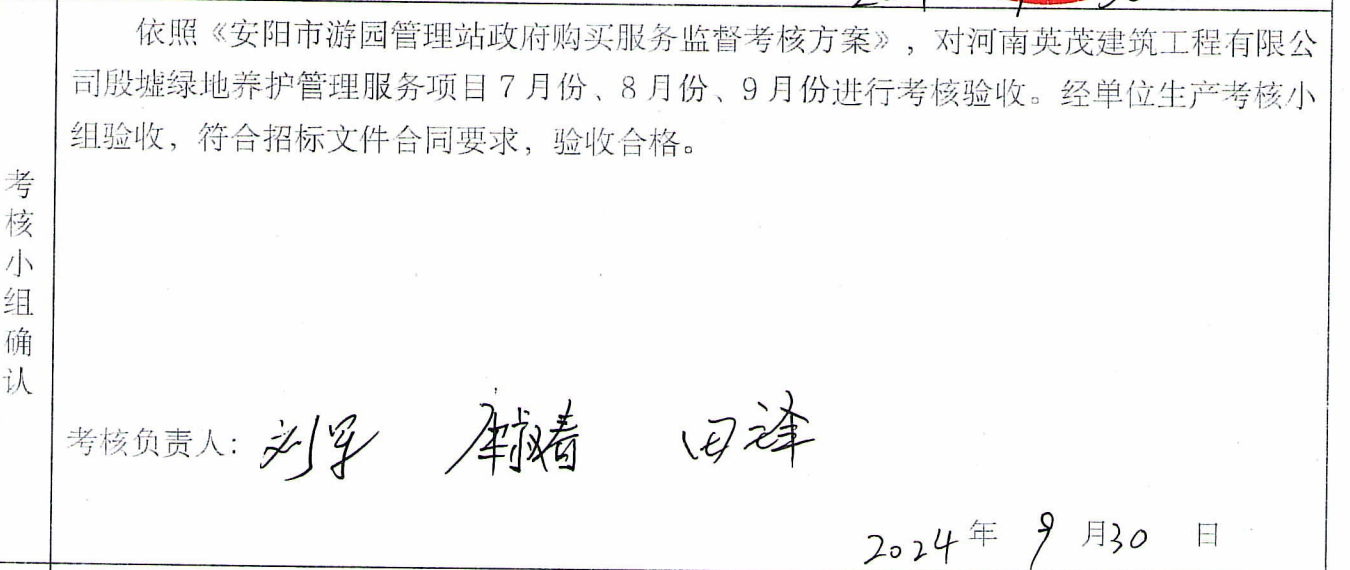 依照《安阳市游园管理站政府购买服务监督考核方案》，对河南英茂建筑工程有限公
司殷墟绿地养护管理服务项目7月份、8月份、9月份进行考核验收。经单位生产考核小
组验收，符合招标文件合同要求，验收合格。
考核小组确认
考核负责人：刘军 田泽
2024年 9月30 日